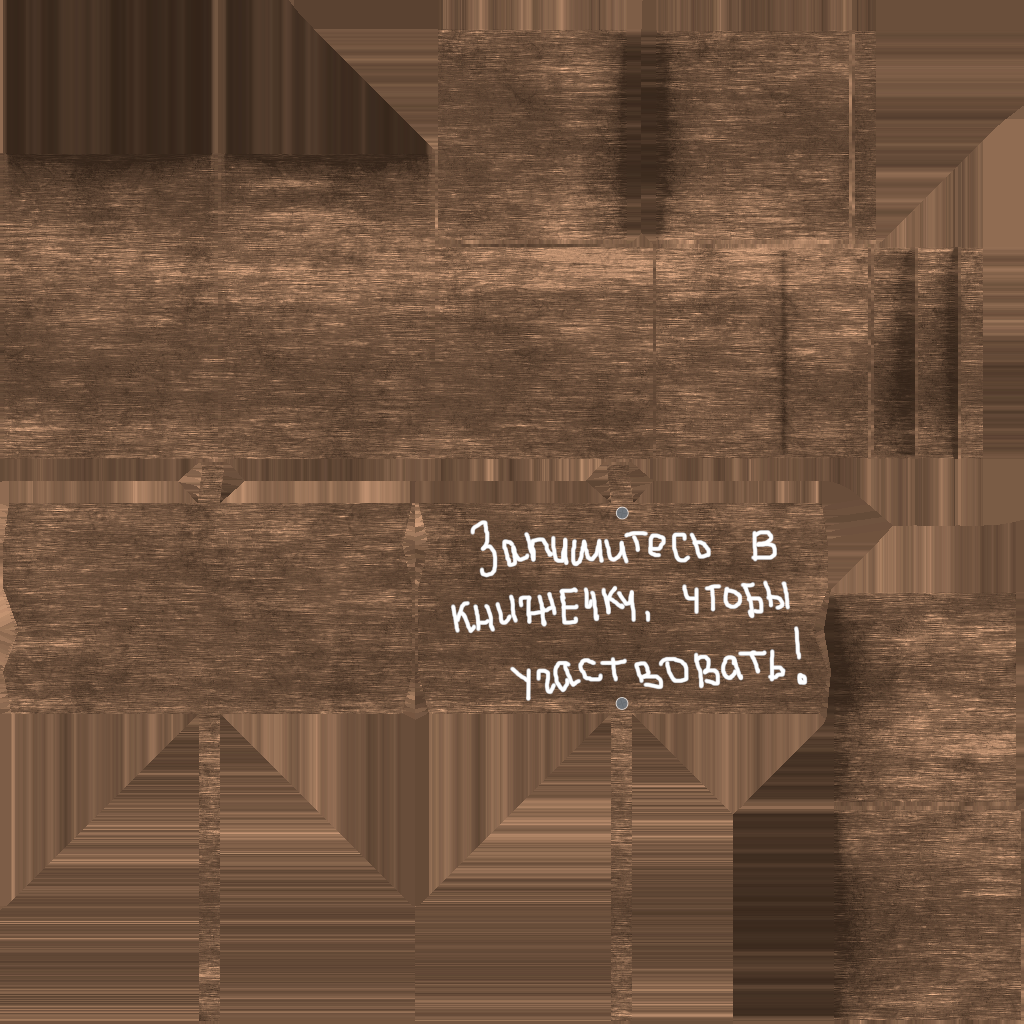 Запишитесь в
книжечку, чтобы
участвовать!